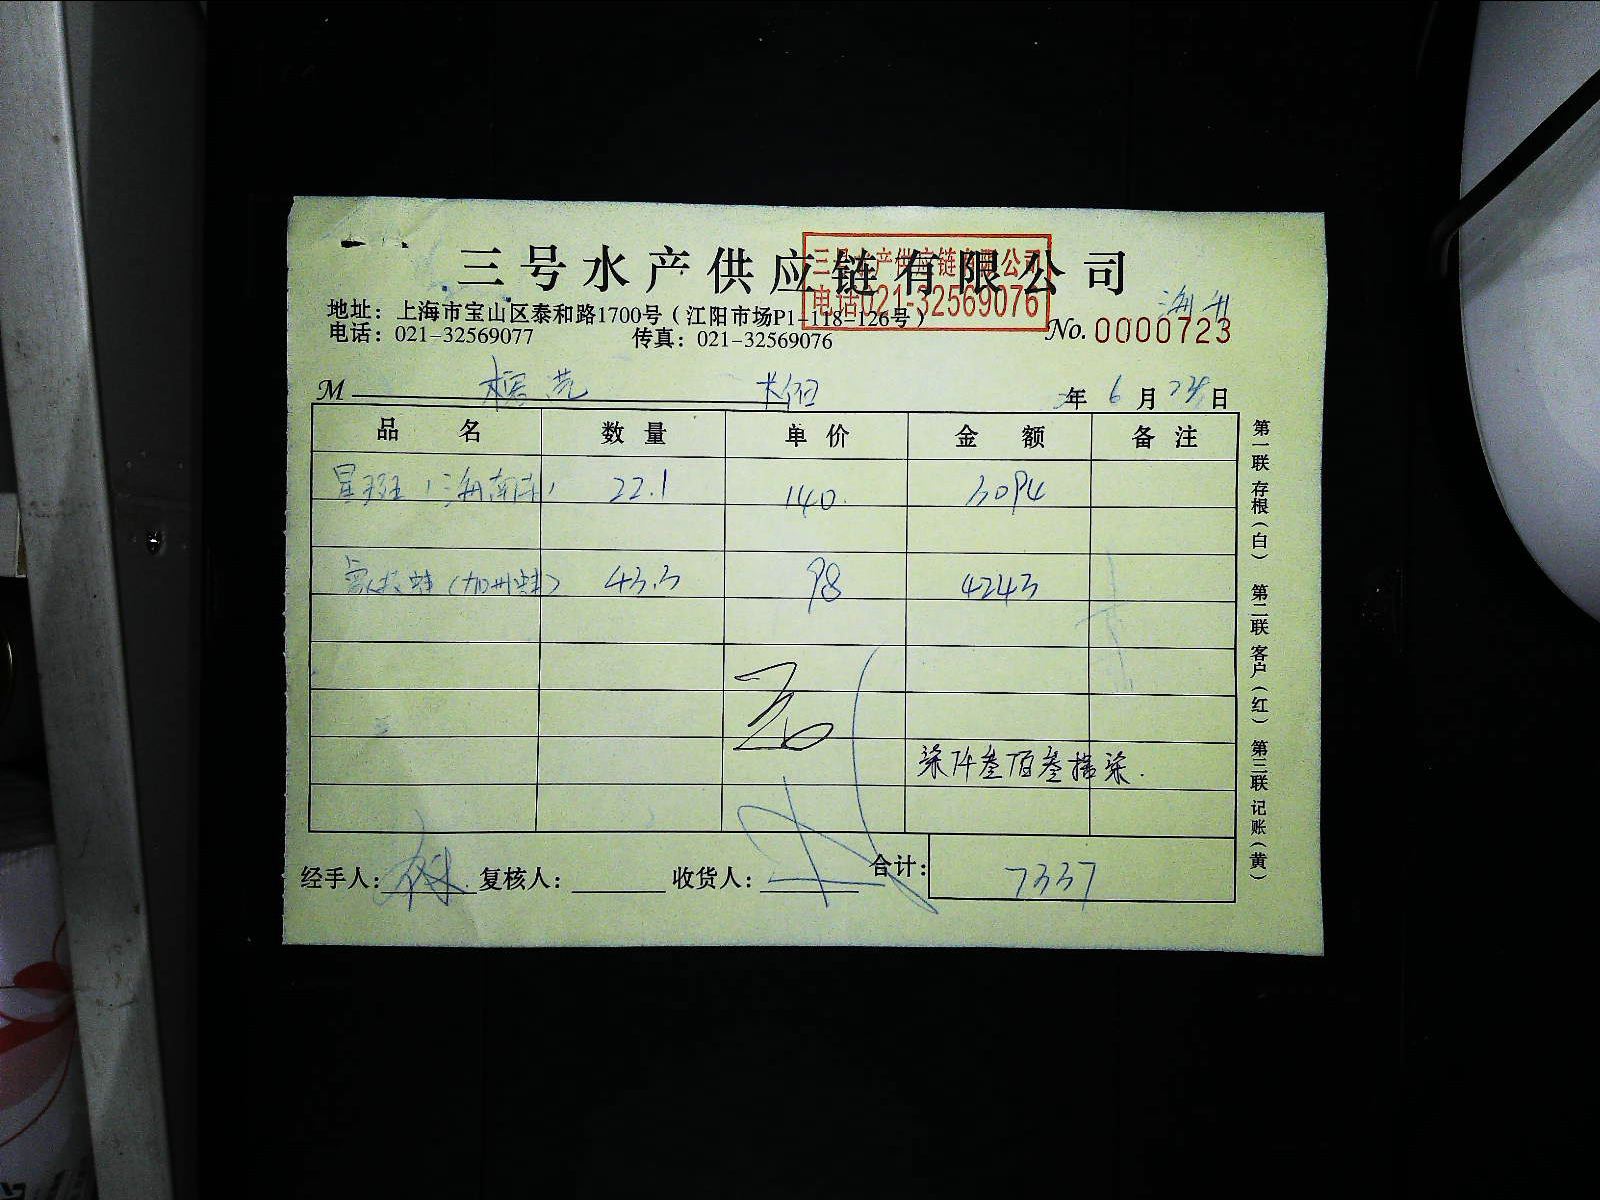 三号水产供应链有限公司
三号水产供应链有限公司
电话021-32569076
地址：上海市宝山区泰和路1700号（江阳市场P1-118-126号）
电话：021-32569077 传真：021-32569076
No. 0000723
M 年 6 月 24 日
品 名 数 量 单 价 金 额 备 注
星斑（海南 22.1 140. 3094
象拔蚌（加州蚌） 43.3 98 4243
柒仟叁佰叁拾柒.
经手人： 复核人： 收货人： 合计： 7337
第一联 存根（白） 第二联 客户（红） 第三联 记账（黄）